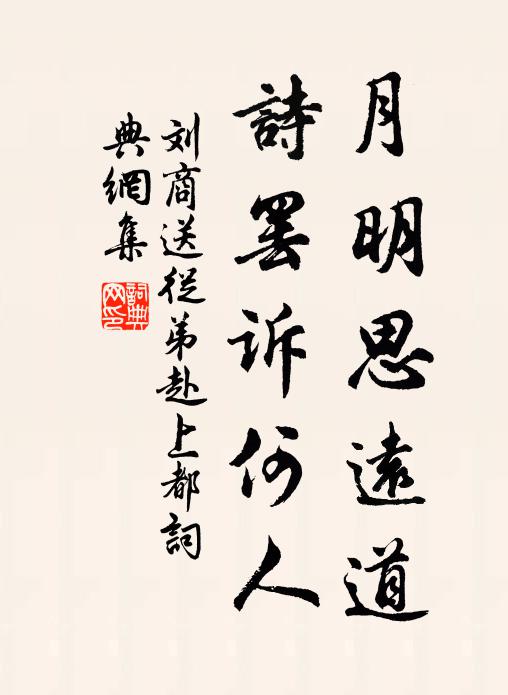 月明思遠道
詩罢訴何人
刘商送從弟赴上都詞
典網集
詞典网印